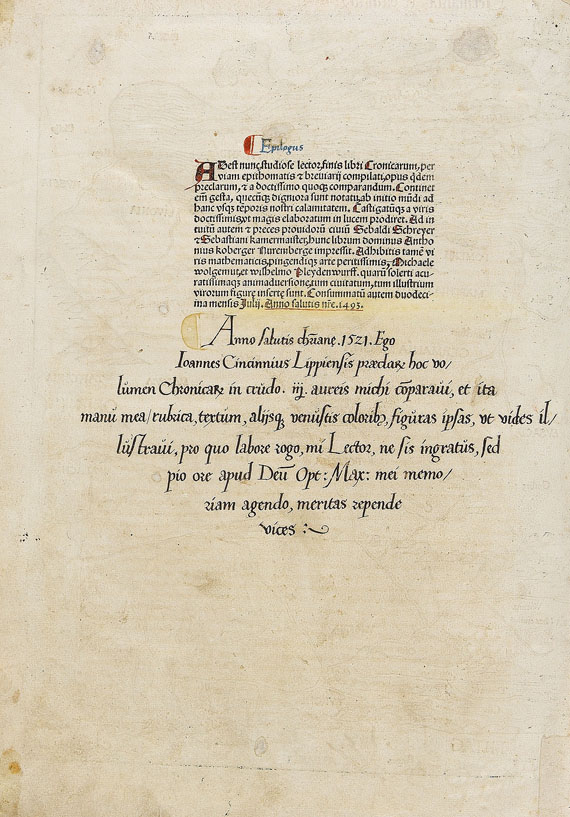 Epilogus
ADest nunc studiose lector finis libri Cronicarum, per
viam epithomatis ⁊ breuiarij compilati, opus q̃dem
preclarum, ⁊ a doctissimo quoq; comparandum. Continet
em̃ gesta, quecũq; digniora sunt notatu ab initio mũdi ad
hanc vsq; tẽporis nostri calamitatem. Castigatũq; a viris
doctissimis vt magis elaboratum in lucem prodiret. Ad in
tuitũ autem ⁊ preces prouidorũ ciuiũ Sebaldi Schreyer
⁊ Sebastiani kamermaister, hunc librum dominus Antho
nius koberger Nuremberge impressit. Adhibitis tamẽ vi
ris mathematicis, pingendiq; arte peritissimis, Michaele
wolgemut, et wilhelmo Pleydenwurff. quarũ solerti acu-
ratissimaq; animaduersione, tum ciuitatum, tum illustrium
virorum figure inserte sunt. Consummatũ autem duodeci
ma mensis Julij. Anno salutis nr̃e. 1493.
Anno salutis chr̃iane. 1521. Ego
Ioannes Cincinnius Lippiensis præclaꝝ hoc vo/
lumen Chronicaꝝ in crudo. iij. aureis michi cõparaui, et ita
manu mea / rubrica, textum, alijsq; venustis coloribꝫ, figuras ipsas, vt vides il/
lustraui, pro quo labore rogo, mi Lector, ne sis ingratus, sed
pio ore apud Deũ Opt: Max: mei memo/
riam agendo, meritas repende
vices :~